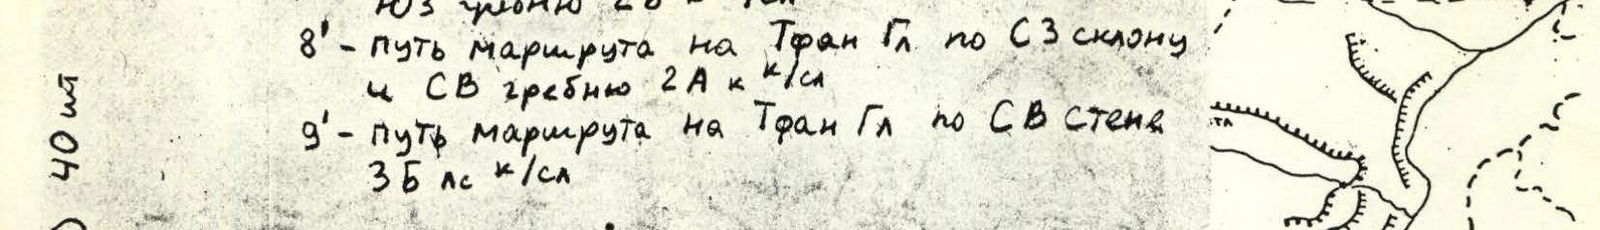 ЮЗ гребню 2Б к к/сл
8' - путь маршрута на Тфан Гл по СЗ склону
и СВ гребню 2А к к/сл
9' - путь маршрута на Тфан Гл по СВ стене
3Б лс к/сл
40 шт